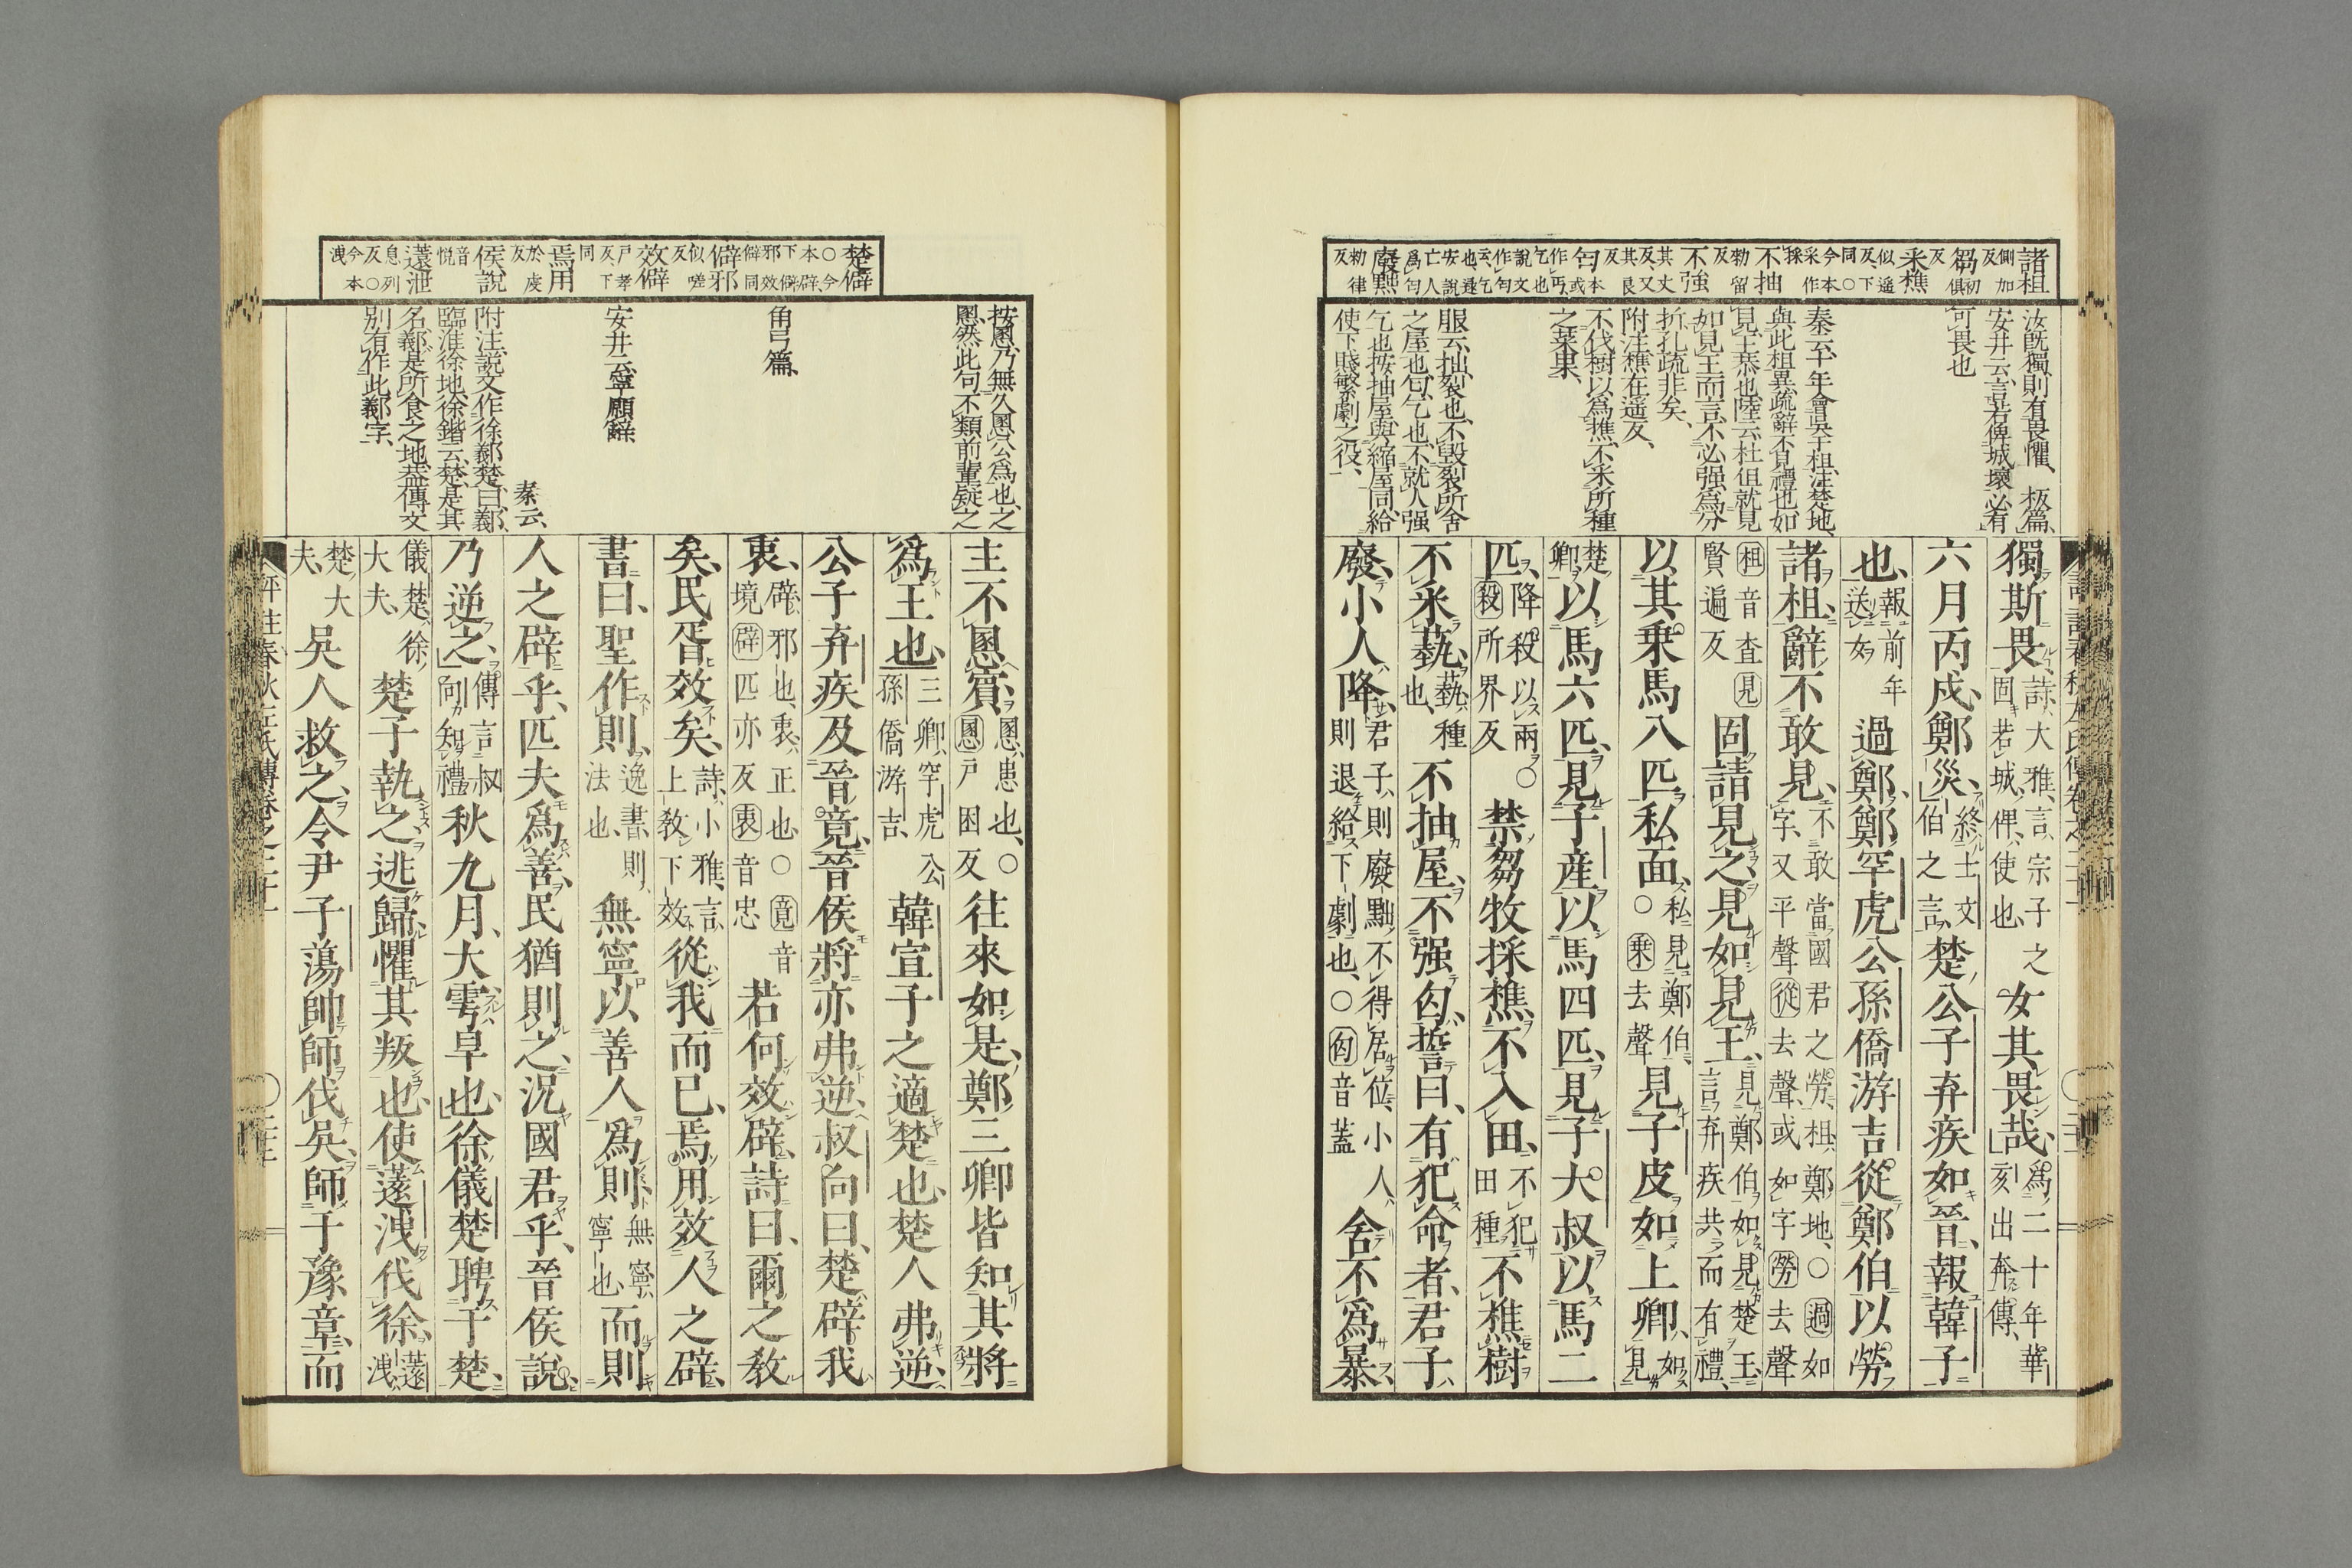 諸柤側加反芻初俱反采樵似遙反、下同○今本采作採不抽勑留反不強其丈反、又其良反匄本或作丐、乞也、說文作匄云、乞也、逯安說亡人爲匄廢黜勑律反
汝既獨則有畏懼、板篇、
安井云、言若俾城壞必有
可畏也
秦云、十年會吳于柤、注楚地、
與此柤異、疏辭不見禮也、如
見王恭也、陸云、杜但就見
如見王而言、不必强爲分
折、孔疏非矣、
附注樵在遙反、
不伐樹以爲樵、不采所種
之菜果、
服云、抽裂也、不毀裂所舍
之屋也、匄、乞也、不就人强
乞也、按抽屋與縮屋同、給
使下賤繁劇之役、
獨斯畏、詩、大雅、言、宗子之固若城、俾、使也、女其畏哉、爲二十年華亥出奔傳、
六月丙戌、鄭災、終士文伯之言、楚公子弃疾如晉、報韓子
也、報前年送女過鄭、鄭罕虎公孫僑游吉從鄭伯以勞
諸柤、辭不敢見、不敢當國君之勞、柤、鄭地、○過如字、又平聲從去聲、或如字勞去聲
柤音査見賢遍反固請見之、見如見王、見鄭伯如見楚王、言弃疾共而有禮、
以其乗馬八匹私面、私見鄭伯、○乗去聲見子皮如上卿、如見
楚卿以馬六匹、見子產以馬四匹、見子大叔以馬二
匹、降殺以兩、○殺所界反禁芻牧採樵、不入田、不犯田種不樵樹
不采蓺、蓺、種也、不抽屋、不强匄、誓曰、有犯命者、君子
廢、小人降、君子則廢黜不得居位、小人則退給下劇也、○匄音蓋舍不爲暴、
楚僻○今本僻、下邪僻效同僻邪似嗟反效僻戶孝反下同焉用於虔反侯說音悅薳泄息列反○今本洩
按慁、乃無久慁公爲也、之
慁、然此句不類前輩疑之
角弓篇、
安井云、寧願辭、
秦云、
附注說文作徐䣜楚、曰、䣜、
臨淮徐地、徐鍇云、楚、是其
名、䣜、是所食之地、蓋傳文
別有作此䣜字、
主不慁賓、慁、患也、○慁戶困反往來如是、鄭三卿皆知其將
爲王也、三卿、罕虎公孫僑游吉、韓宣子之適楚也、楚人弗逆、
公子弃疾及晉竟、晉侯將亦弗逆、叔向曰、楚辟我
衷、辟、邪也、衷、正也、○竟音境辟匹亦反衷音忠若何效辟、詩曰、爾之敎
矣、民胥效矣、詩、小雅、言、上敎下效從我而已、焉用效人之辟、
書曰、聖作則、逸書、則、法也、無寧以善人爲則、無寧、寧也、而則
人之辟乎、匹夫爲善、民猶則之、況國君乎、晉侯說、
乃逆之、傳言叔向知禮秋九月、大雩、旱也、徐儀楚聘于楚、
儀楚、徐大夫、楚子執之、逃歸、懼其叛也、使薳洩伐徐、薳洩、
楚大夫、吳人救之、令尹子蕩帥師伐吳、師于豫章、而